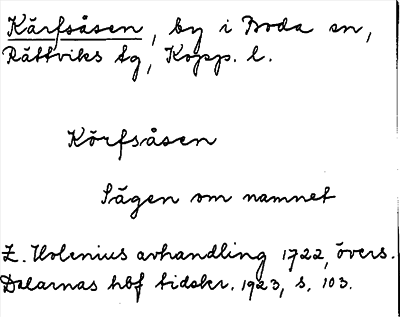 Kärfsåsen, by i Boda sn,
Rättviks tg, Kopp. l.
Körfsåsen
Sägen om namnet
Z. Holenius avhandling 1722, övers.
Dalarnas hbf tidskr. 1923, s. 103.